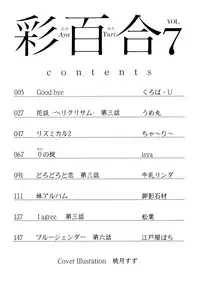 彩百合 VOL.7
Aya Yuri
contents
005 Good bye くろば・U
027 花談 -ヘリクリサム- 第三話 うめ丸
047 リズミカル2 ちゃ〜り〜
067 0の掟 isya
091 どろどろと恋 第三話 牛乳リンダ
111 妹アルバム 御影石材
127 I agree 第三話 松葉
147 ブルージェンダー 第六話 江戸屋ぽち
Cover Illustration 桃月すず